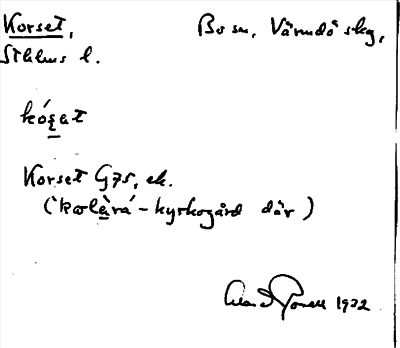 Korset, Bo sn, Värmdö skg,
Sthlms l.
kóʂat
Korset G75, ek.
(kolàrá-kyrkogård där)
1932